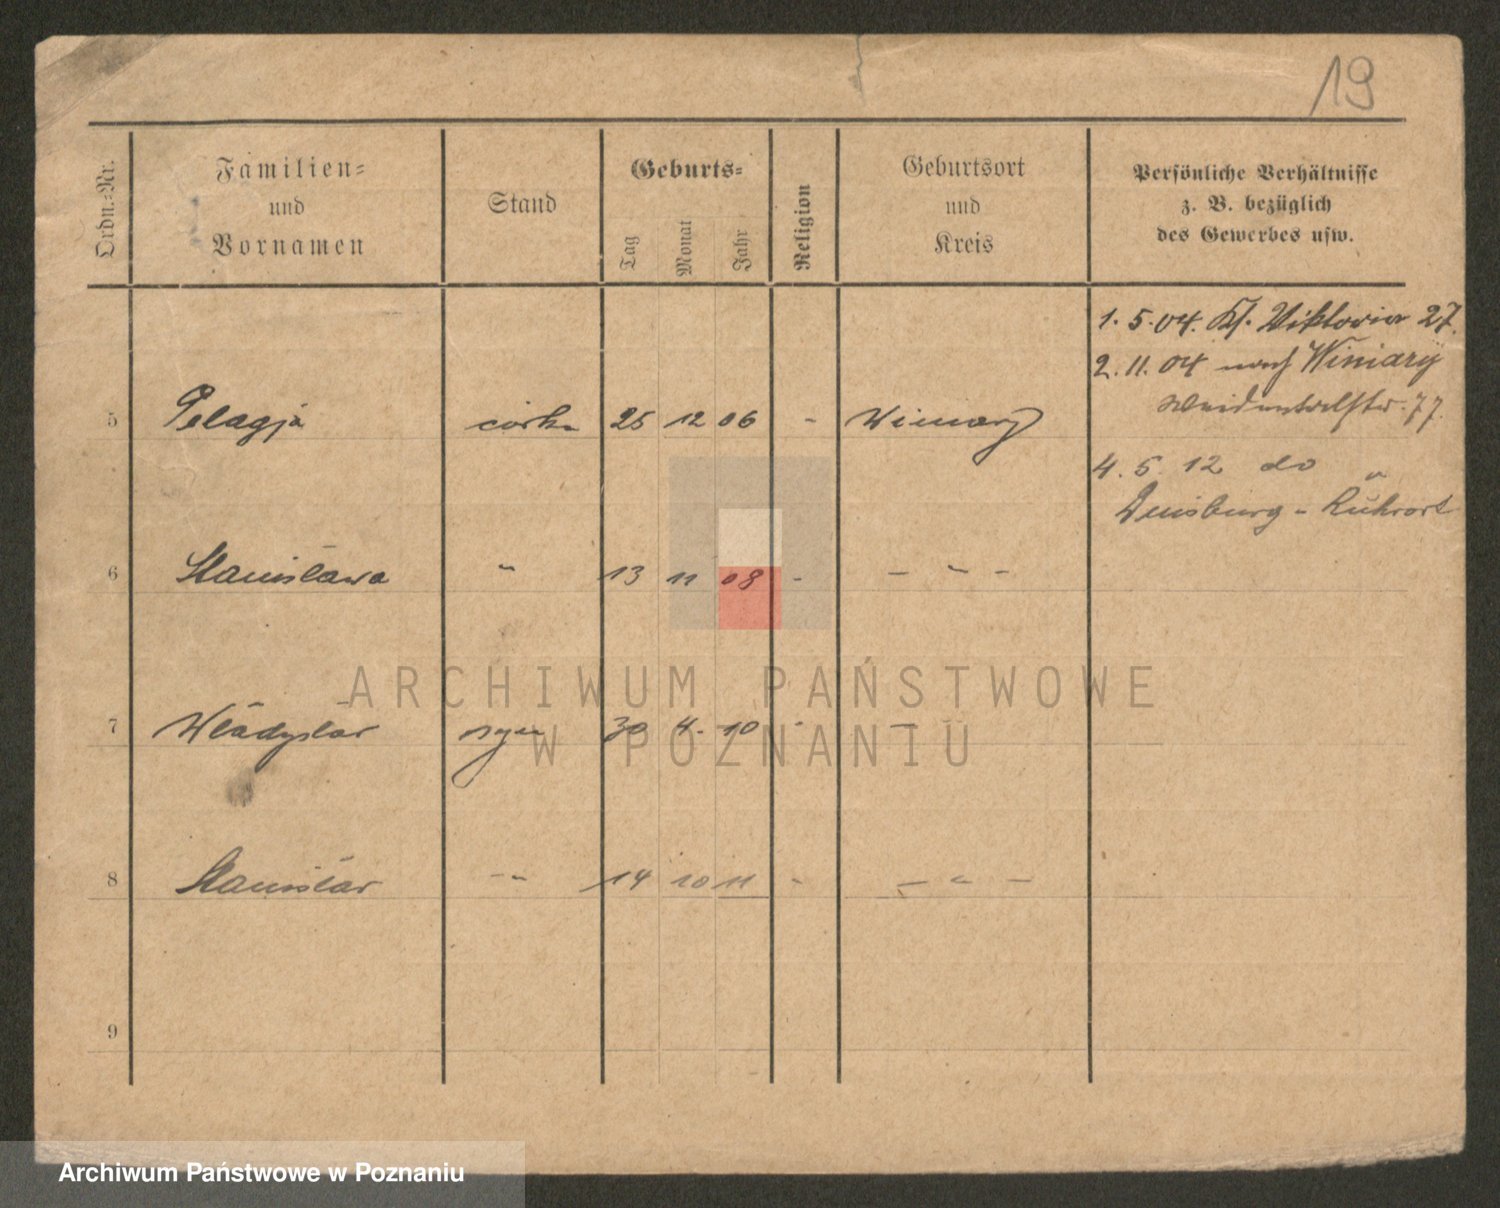 19
Ordn.-Nr.
Familien-
und
Vornamen
Stand
Geburts-
Tag
Monat
Jahr
Religion
Geburtsort
und
Kreis
Persönliche Verhältnisse
z. B. bezüglich
des Gewerbes usw.
1. 5. 04. Kl. Viktoria 27.
2. 11. 04 nach Winiary
77.
5 Pelagja córka 25 12 06 - Winiary
4. 5. 12 do
Duisburg - Ruhrort
6 Stanisława " 13 11 08 - - " -
ARCHIWUM PAŃSTWOWE
7 Władysław syn 30 4. 10 - -
W POZNANIU
8 Stanisław - " 14 10 11 - - " -
9
Archiwum Państwowe w Poznaniu